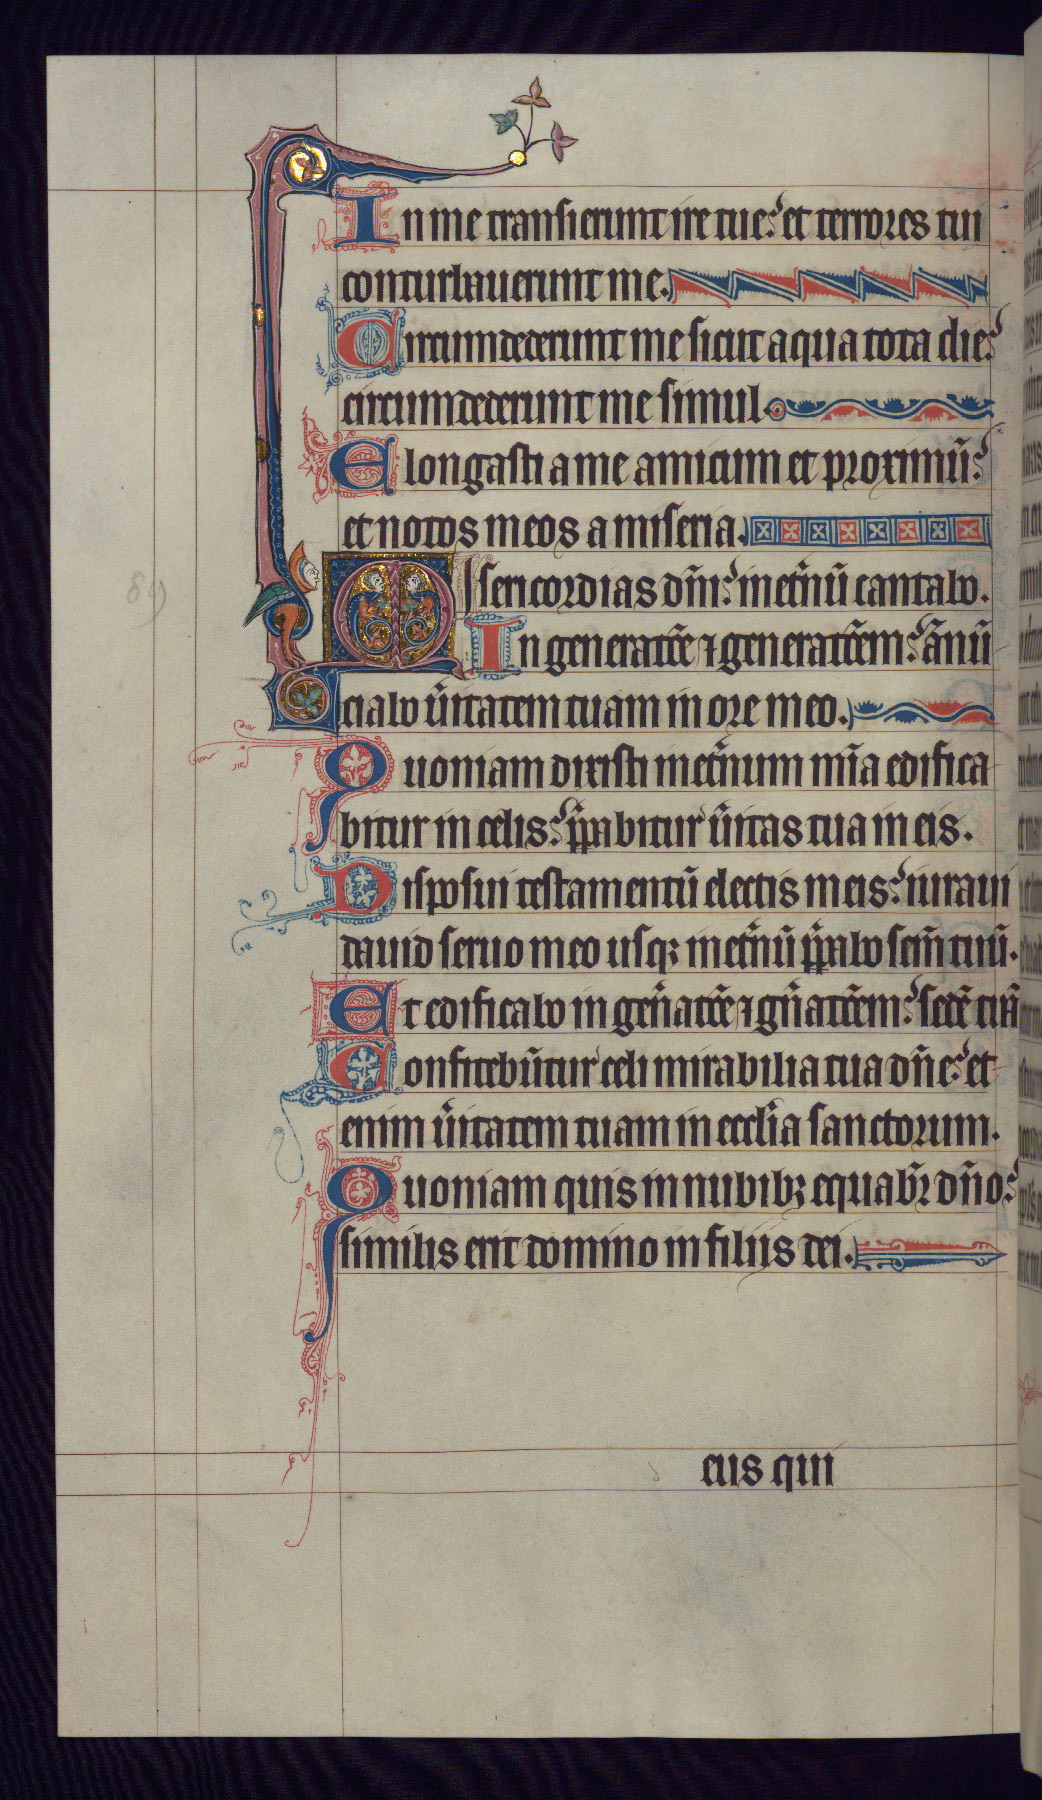 In me transierunt ire tue: et terrores tui
conturbauerunt me.
Circumdederunt me sicut aqua tota die:
circumdederunt me simul.
Elongasti a me amicum et proximū:
et notos meos a miseria.
Misericordias dn̄i: in et̄nū cantabo.
In generatōe ⁊ generatōem: ān̄ū
ciabo ūitatem tuam in ore meo.
89)
Quoniam dixisti in et̄num mīa edifica
bitur in celis: p̄pabitur ūitas tua in eis.
Disposui testamentū electis meis: iuraui
dauid seruo meo usqꝫ in et̄nū p̄pabo sem̄ tuū.
Et edificabo in gen̄atōe ⁊ gn̄atōem: sedē tuā
Confitebūtur celi mirabilia tua dn̄e: et
enim ūitatem tuam in eccl̄ia sanctorum.
Quoniam quis in nubibꝫ equab̄r dn̄o:
similis erit domino in filiis dei.
eius qui